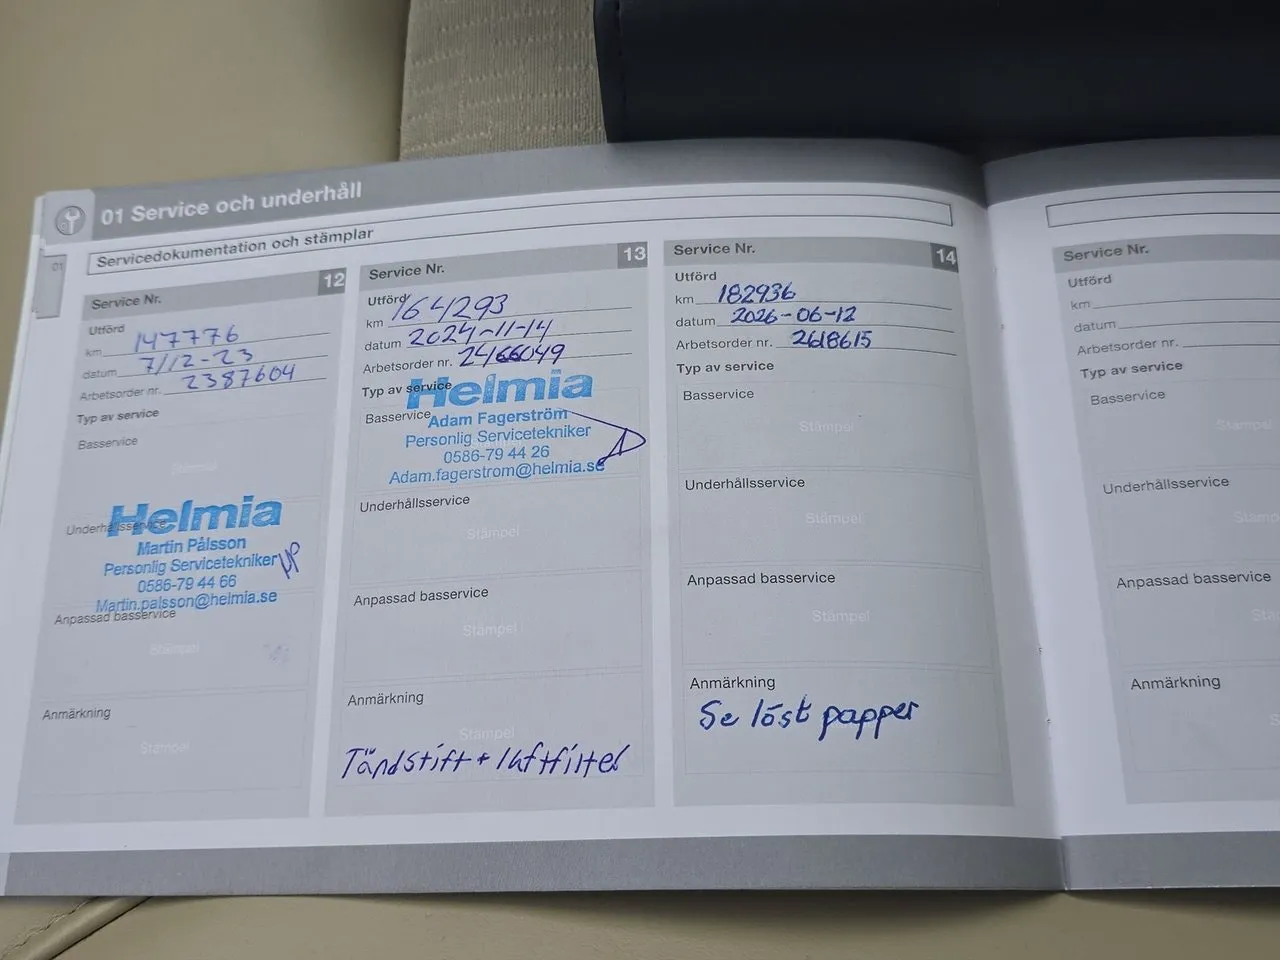 01 Service och underhåll
Servicedokumentation och stämplar
01
Service Nr. 12
Utförd
km 147776
datum 7/12-23
Arbetsorder nr. 2387604
Typ av service
Basservice
Stämpel
Underhållsservice
Helmia
Martin Pålsson
Personlig Servicetekniker
0586-79 44 66
Martin.palsson@helmia.se
Anpassad basservice
Stämpel
Anmärkning
Stämpel
Service Nr. 13
Utförd
km 164293
datum 2024-11-14
Arbetsorder nr. 2466049
Typ av service
Helmia
Basservice
Adam Fagerström
Personlig Servicetekniker
0586-79 44 26
Adam.fagerstrom@helmia.se
Underhållsservice
Stämpel
Anpassad basservice
Stämpel
Anmärkning
Stämpel
Tändstift + luftfilter
Service Nr. 14
Utförd
km 182936
datum 2026-06-12
Arbetsorder nr. 2618615
Typ av service
Basservice
Stämpel
Underhållsservice
Stämpel
Anpassad basservice
Stämpel
Anmärkning
Se löst papper
Service Nr.
Utförd
km
datum
Arbetsorder nr.
Typ av service
Basservice
Stämpel
Underhållsservice
Stämp
Anpassad basservice
Stä
Anmärkning